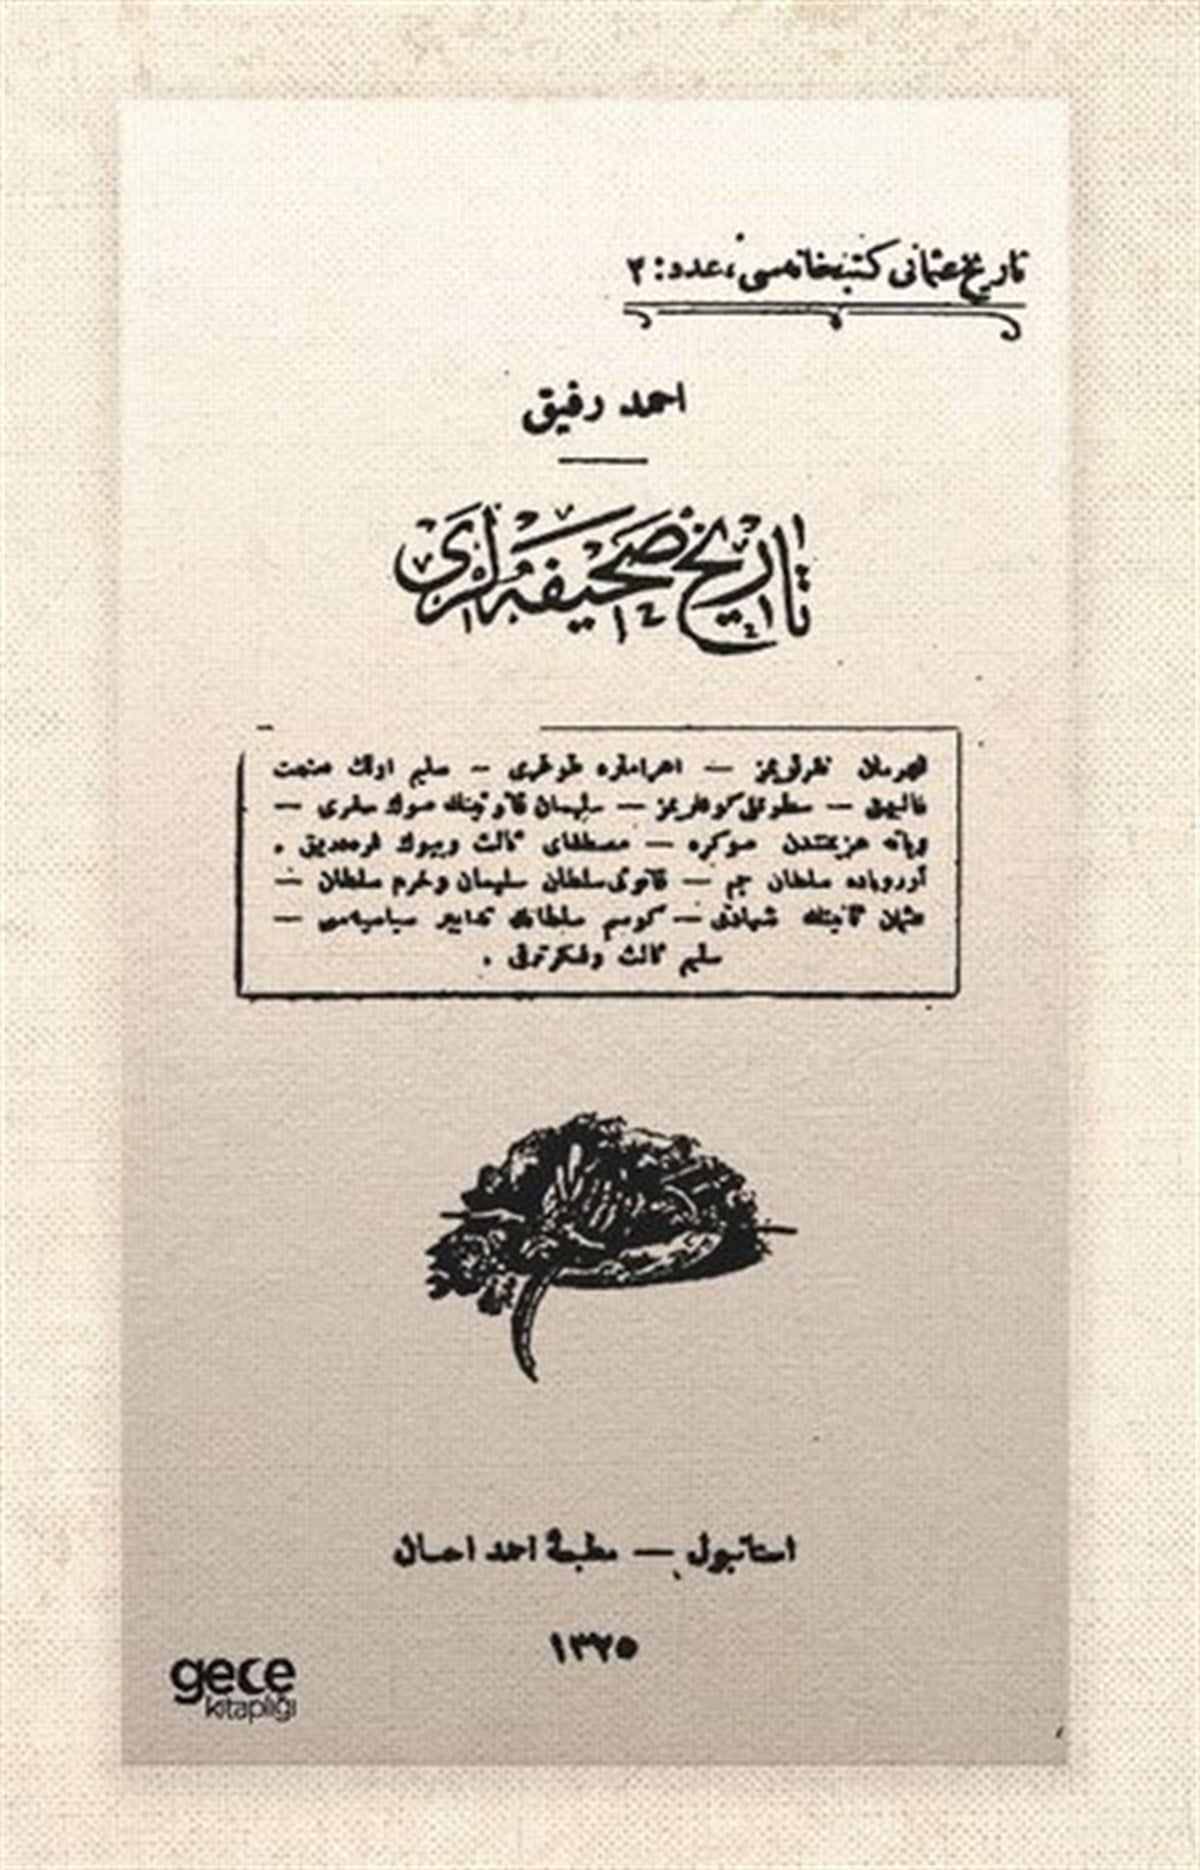 تاریخ عثمانی کتبخانه‌سی، عدد: ۳
احمد رفیق
تاریخ صحیفه‌لری
قهرمان نفرلریمز — اهراملره طوغری — سلیم اولك صنعت
— سطوتلی کونلریمز — سلیمان قانونینك صوك سفری —
ویانه هزیمتندن صوکره — مصطفای ثالث وبیوك فره‌ده‌ریق .
آوروپاده سلطان جم — قانونی سلطان سلیمان وخرم سلطان —
عثمان ثانینك شهادتی — کوسم سلطانك تدابیر سیاسیه‌سی —
سلیم ثالث وفکر ترقی .
استانبول — مطبعهٔ احمد احسان
۱۳۲۵
gece
kitaplığı